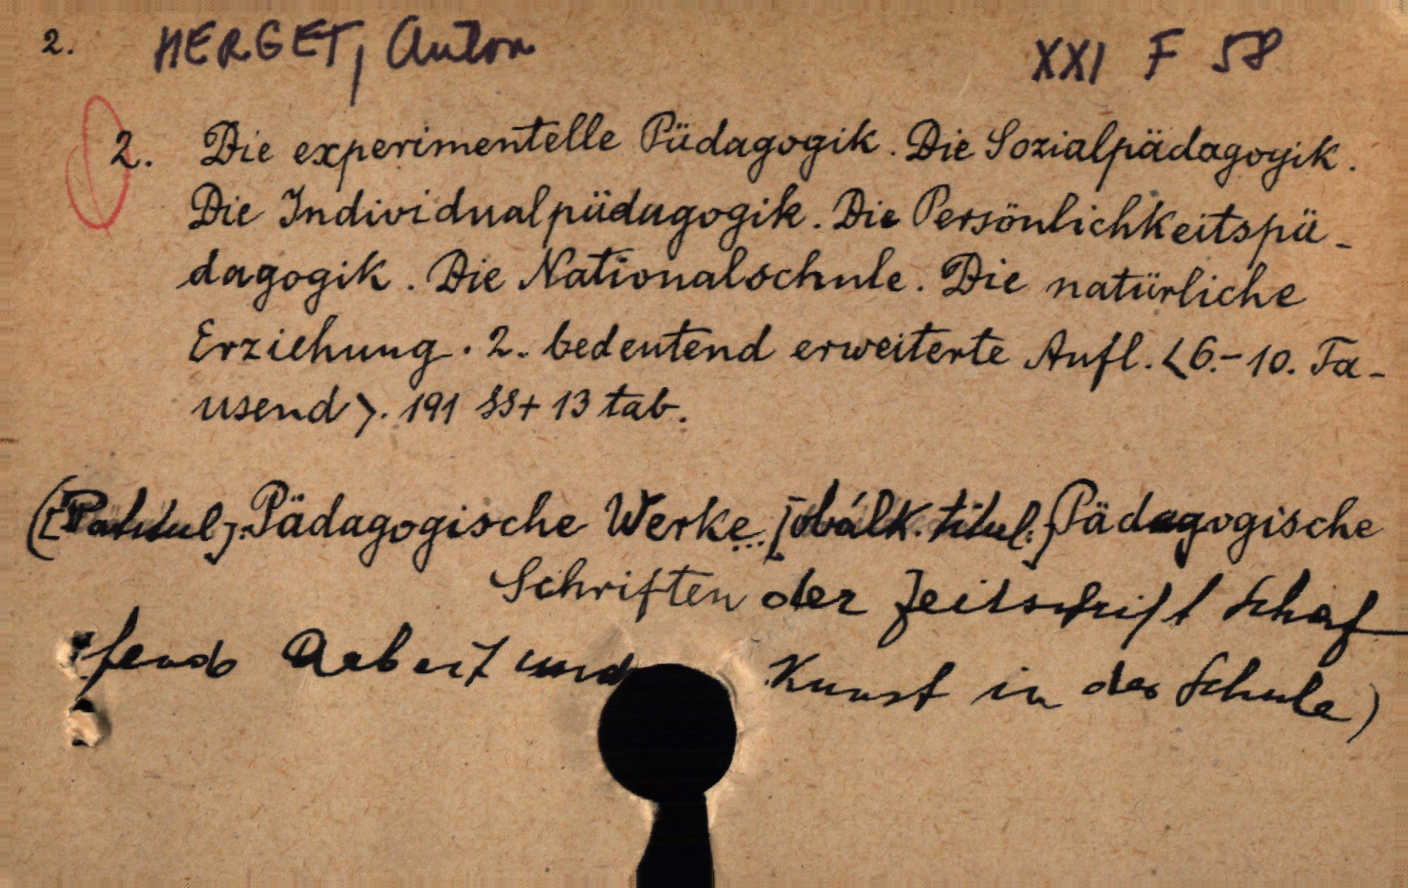 2. HERGET, Anton XXI F 58
2. Die experimentelle Pädagogik. Die Sozialpädagogik.
Die Individualpädagogik. Die Persönlichkeitspä-
dagogik. Die Nationalschule. Die natürliche
Erziehung. 2. bedeutend erweiterte Aufl. <6.-10. Ta-
usend>. 191 SS + 13 tab.
Pädagogische Werke. [obálk. titul:] Pädagogische
Schriften der Zeitschrift Schaf-
fende Arbeit und Kunst in der Schule)